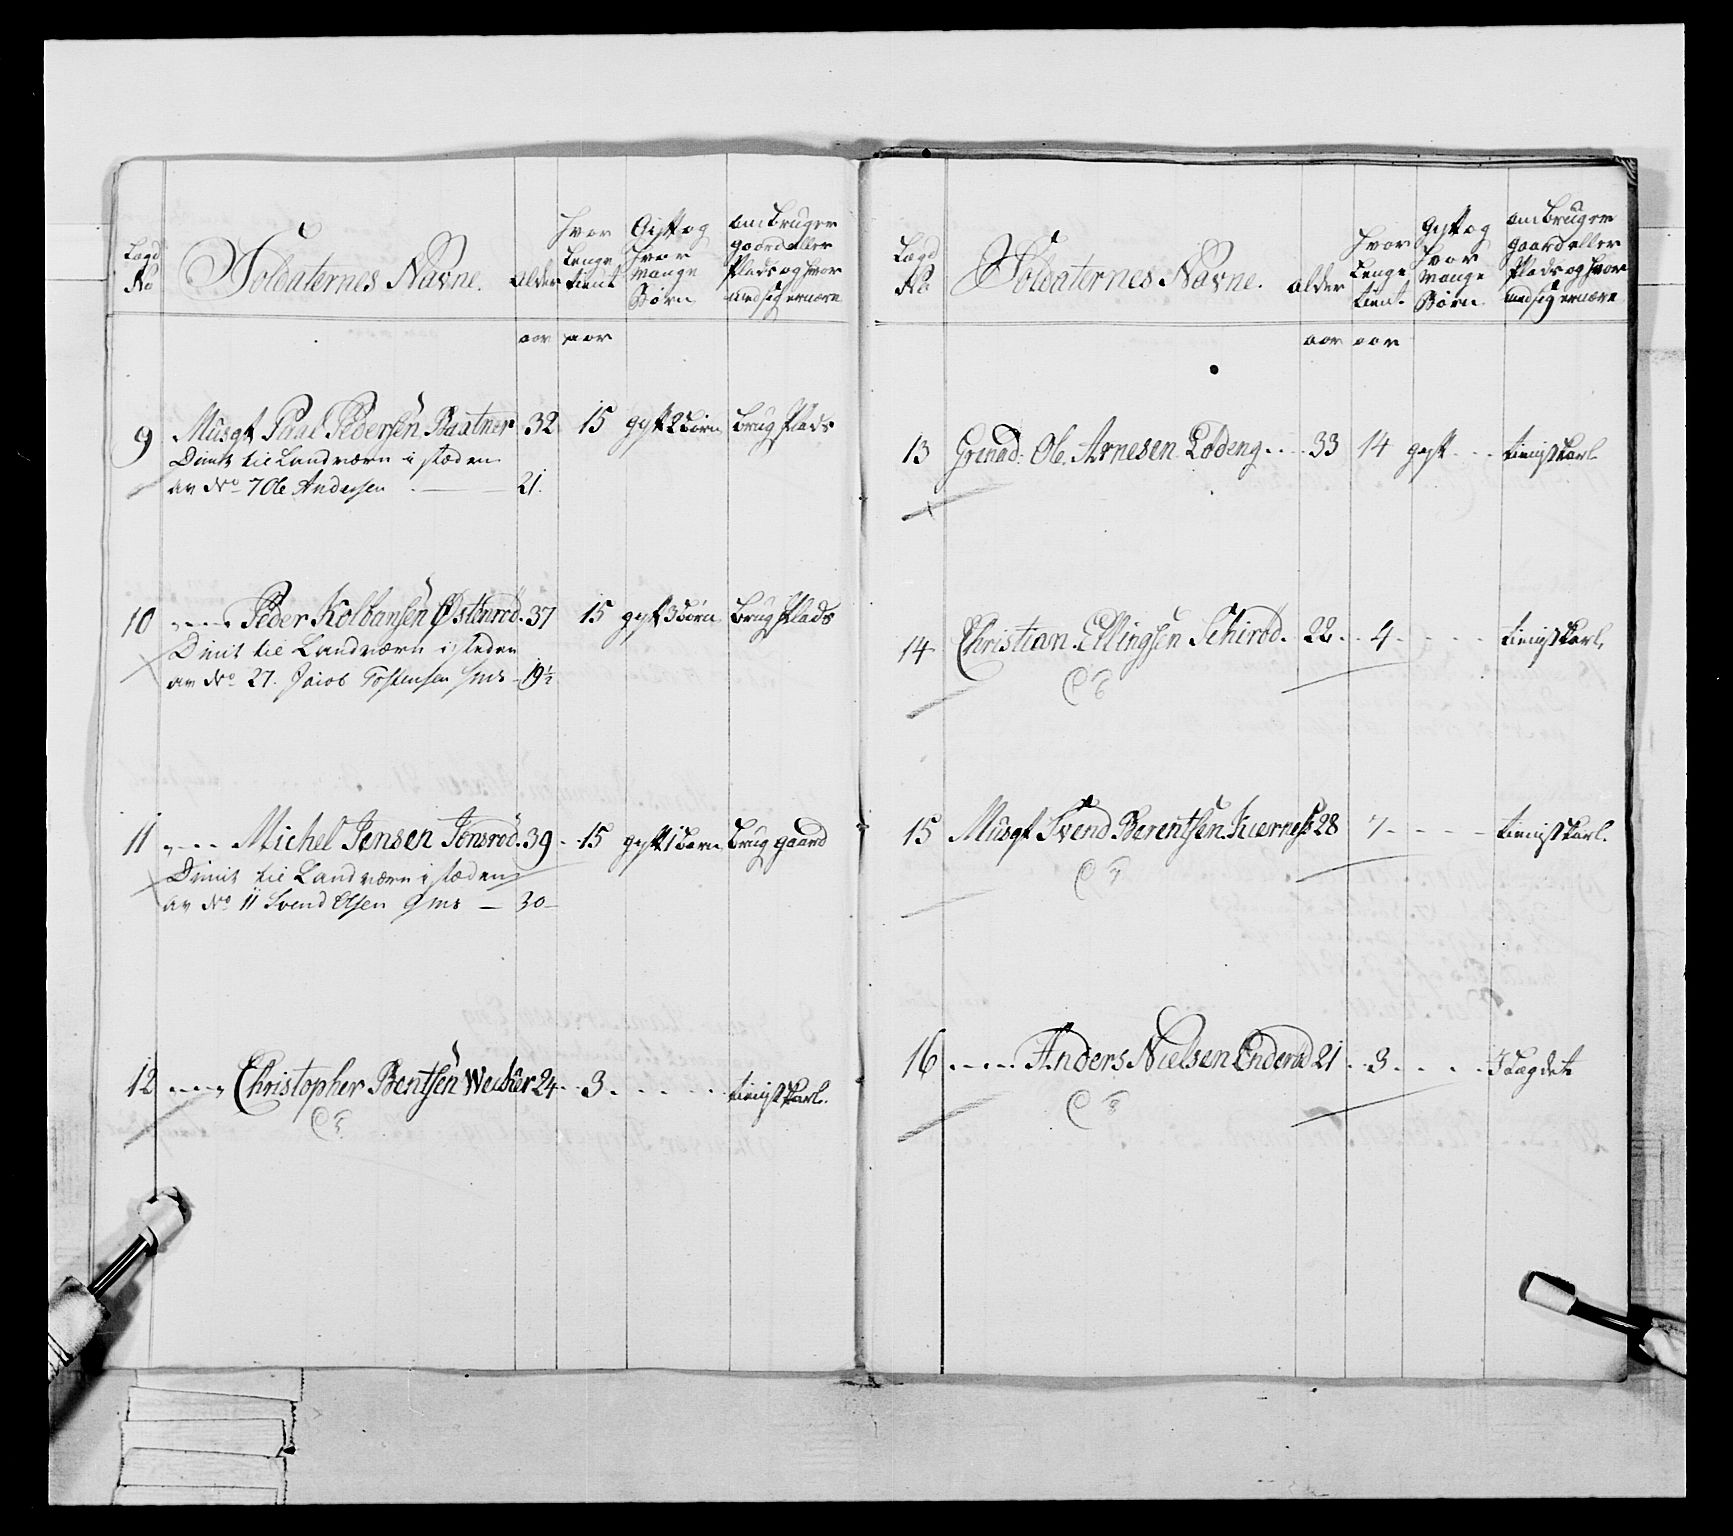 Lægd No
Soldaternes Navne.
alder
hvor Lenge tient
Gift og hvor mange Børn
om bruger gaard eller Plads og hvor med sig ernære
aar aar
9 Musqt Paul Pedersen Baatner 32 15 gift 2 Børn brug Plads
Dimit til Landværn i stæden
av No 7 Ole Andersen 21.
10 Peder Kolbansen Østenrød. 37 15 gift 3 børn brug Plads
Dimit til Landværn i steden
av No 27. Jacob Tostensen 19½
11 Michel Jensen Jonsrød. 39 15 gift 1 Barn brug gaard
Dimit til Landværn i stæden
av No 11 Svend Olsen 30
12 Christopher Bentsen 24 3 tienist karl.
Lægd No
Soldaternes Navne.
alder
hvor Lenge tient.
Gift og hvor mange Børn
om bruger gaard eller Plads og hvor med sig ernære
aar aar
13 Grenad: Ole Arnesen Lodeng 33 14 gift tienist karl
14 Christian Ellingsen Schirød. 22 4 tienist karl,
15 Musqt Svend Berentsen Kiernes 28 7 tienist karl.
16 Anders Nielsen Enderød 21 3 I Lægdet